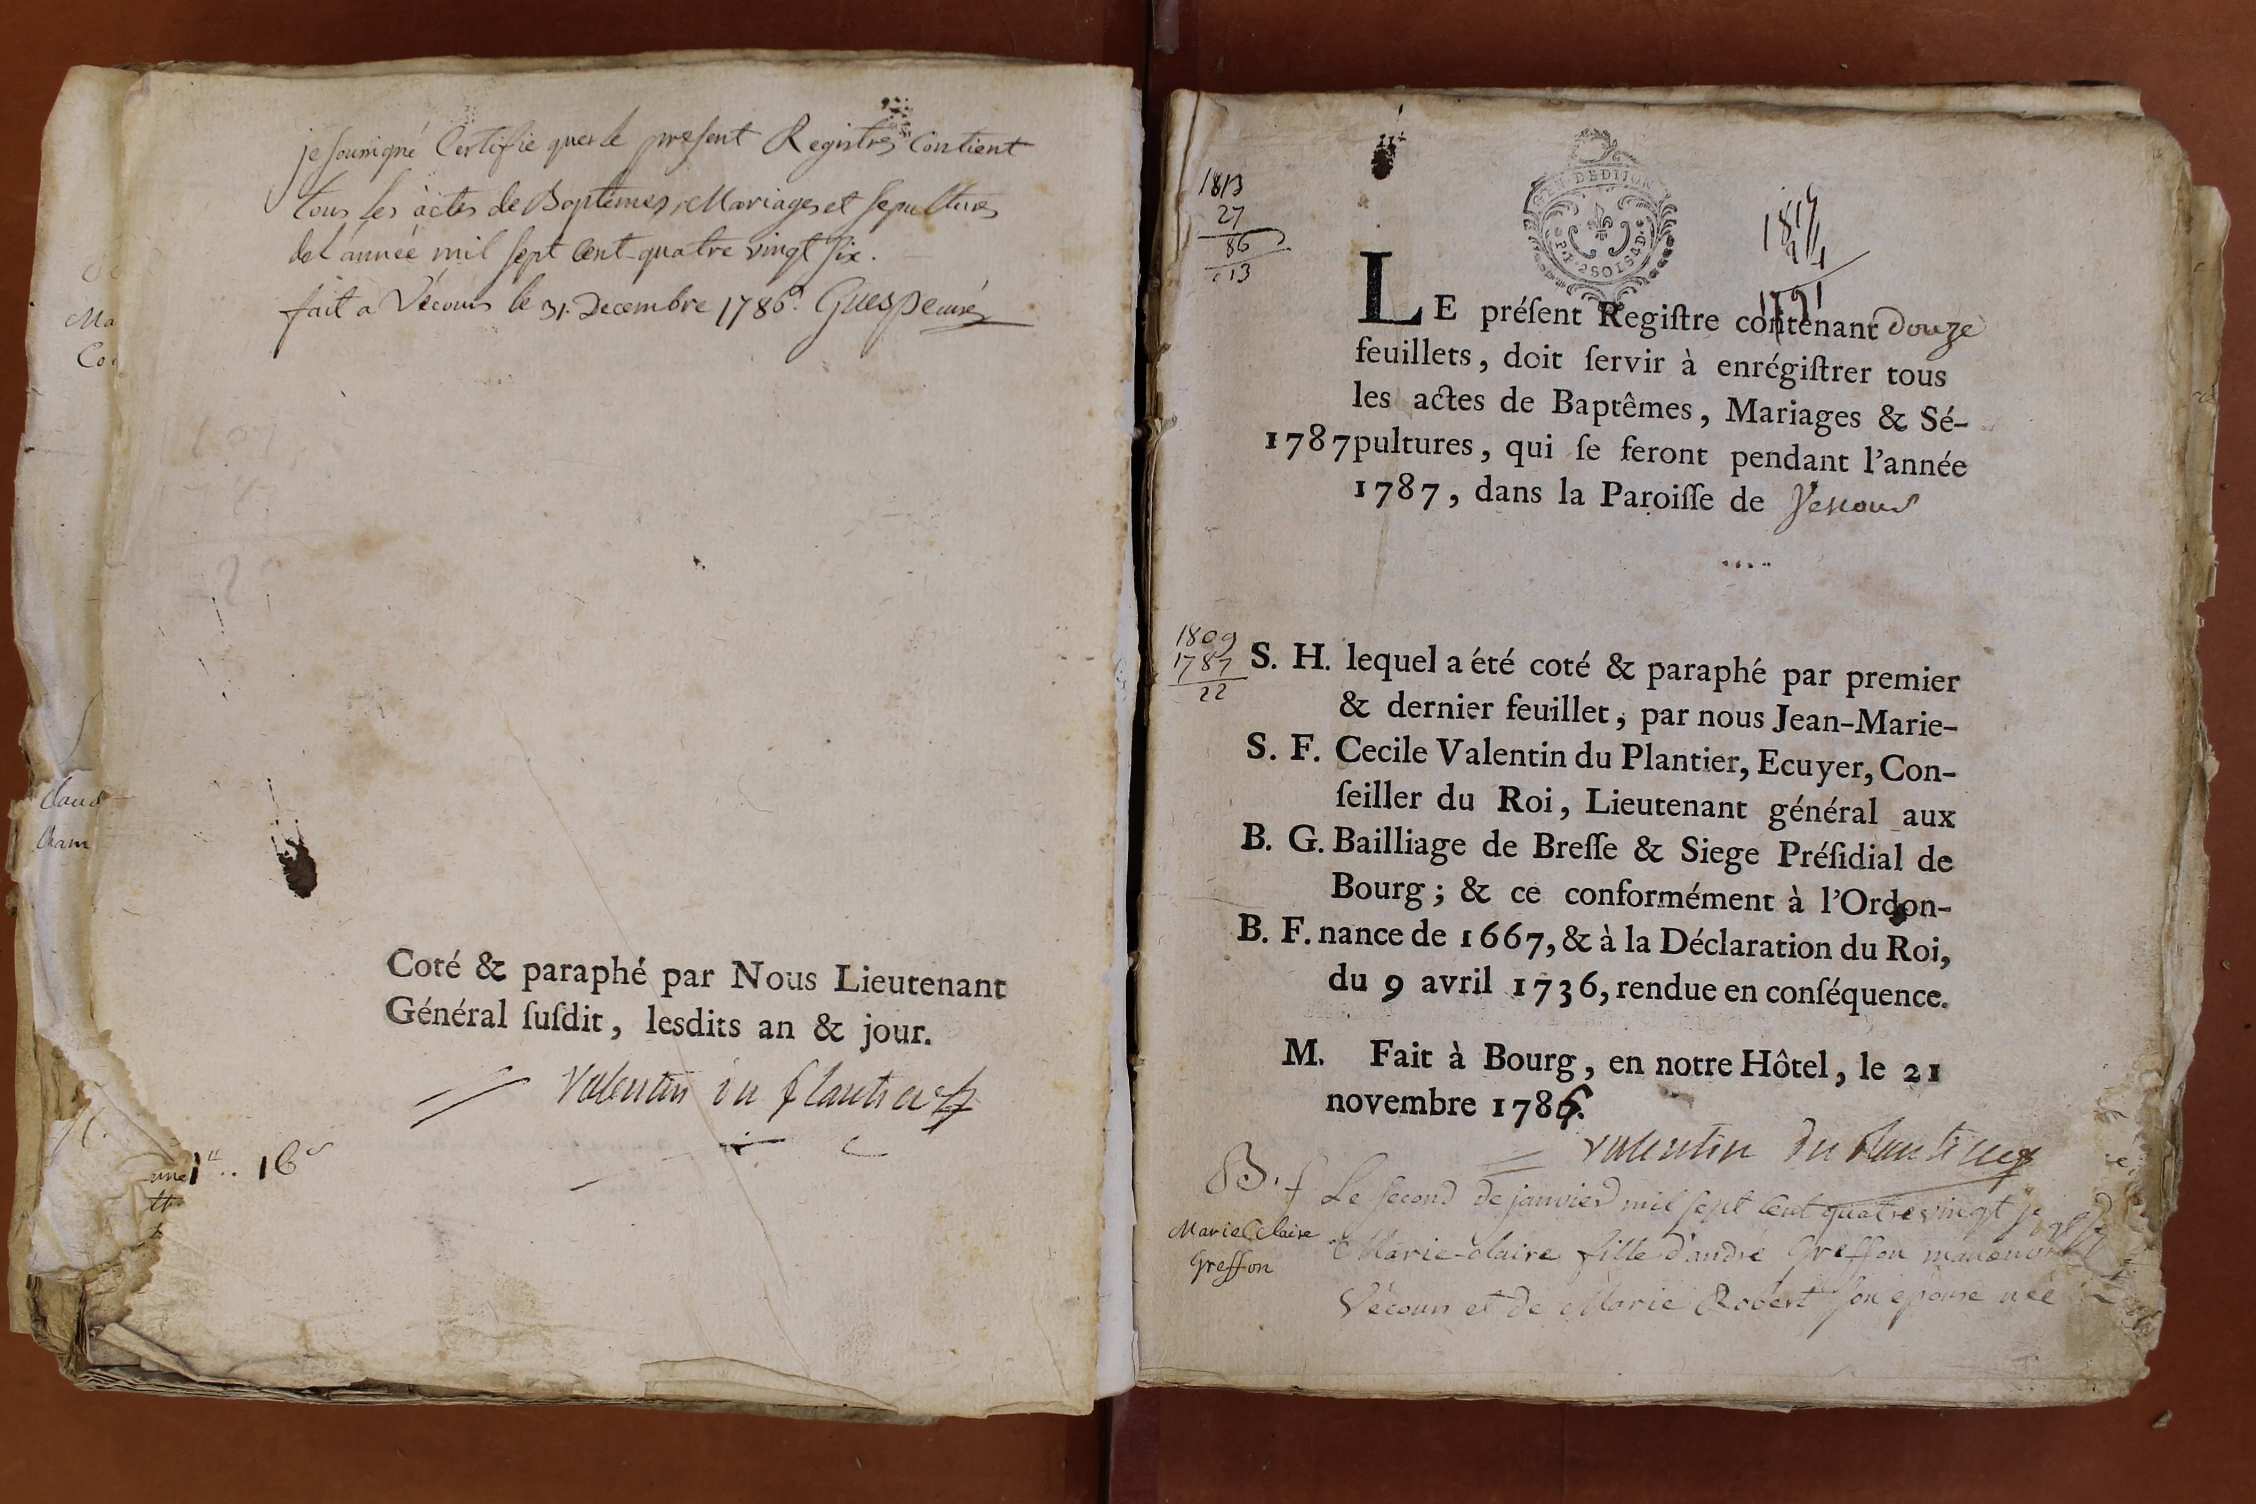 je soussigné Certifie que le present Registre Contient
tous les actes de Baptêmes, Mariages et sepultures
de l'année mil sept cent quatre vingt six.
fait a Vécours le 31. Decembre 1786.
Coté & paraphé par Nous Lieutenant
Général ſuſdit, lesdits an & jour.
Valentin du plantier
1813
27
86
13
LE préſent Regiſtre contenant douze
feuillets, doit ſervir à enrégiſtrer tous
les actes de Baptêmes, Mariages & Sé-
1787 pultures, qui ſe feront pendant l'année
1787, dans la Paroiſſe de
1809
1787
22
S. H. lequel a été coté & paraphé par premier
& dernier feuillet, par nous Jean-Marie-
S. F. Cecile Valentin du Plantier, Ecuyer, Con-
ſeiller du Roi, Lieutenant général aux
B. G. Bailliage de Breſſe & Siege Préſidial de
Bourg; & ce conformément à l'Ordon-
B. F. nance de 1667, & à la Déclaration du Roi,
du 9 avril 1736, rendue en conſéquence.
M. Fait à Bourg, en notre Hôtel, le 21
novembre 1786.
Valentin du plantier
B. f Le second de janvier mil sept cent quatre vingt
Marie Claire
Greffon
Marie-claire fille d'andré Greffon
Vécours et de Marie Robert son epouse née